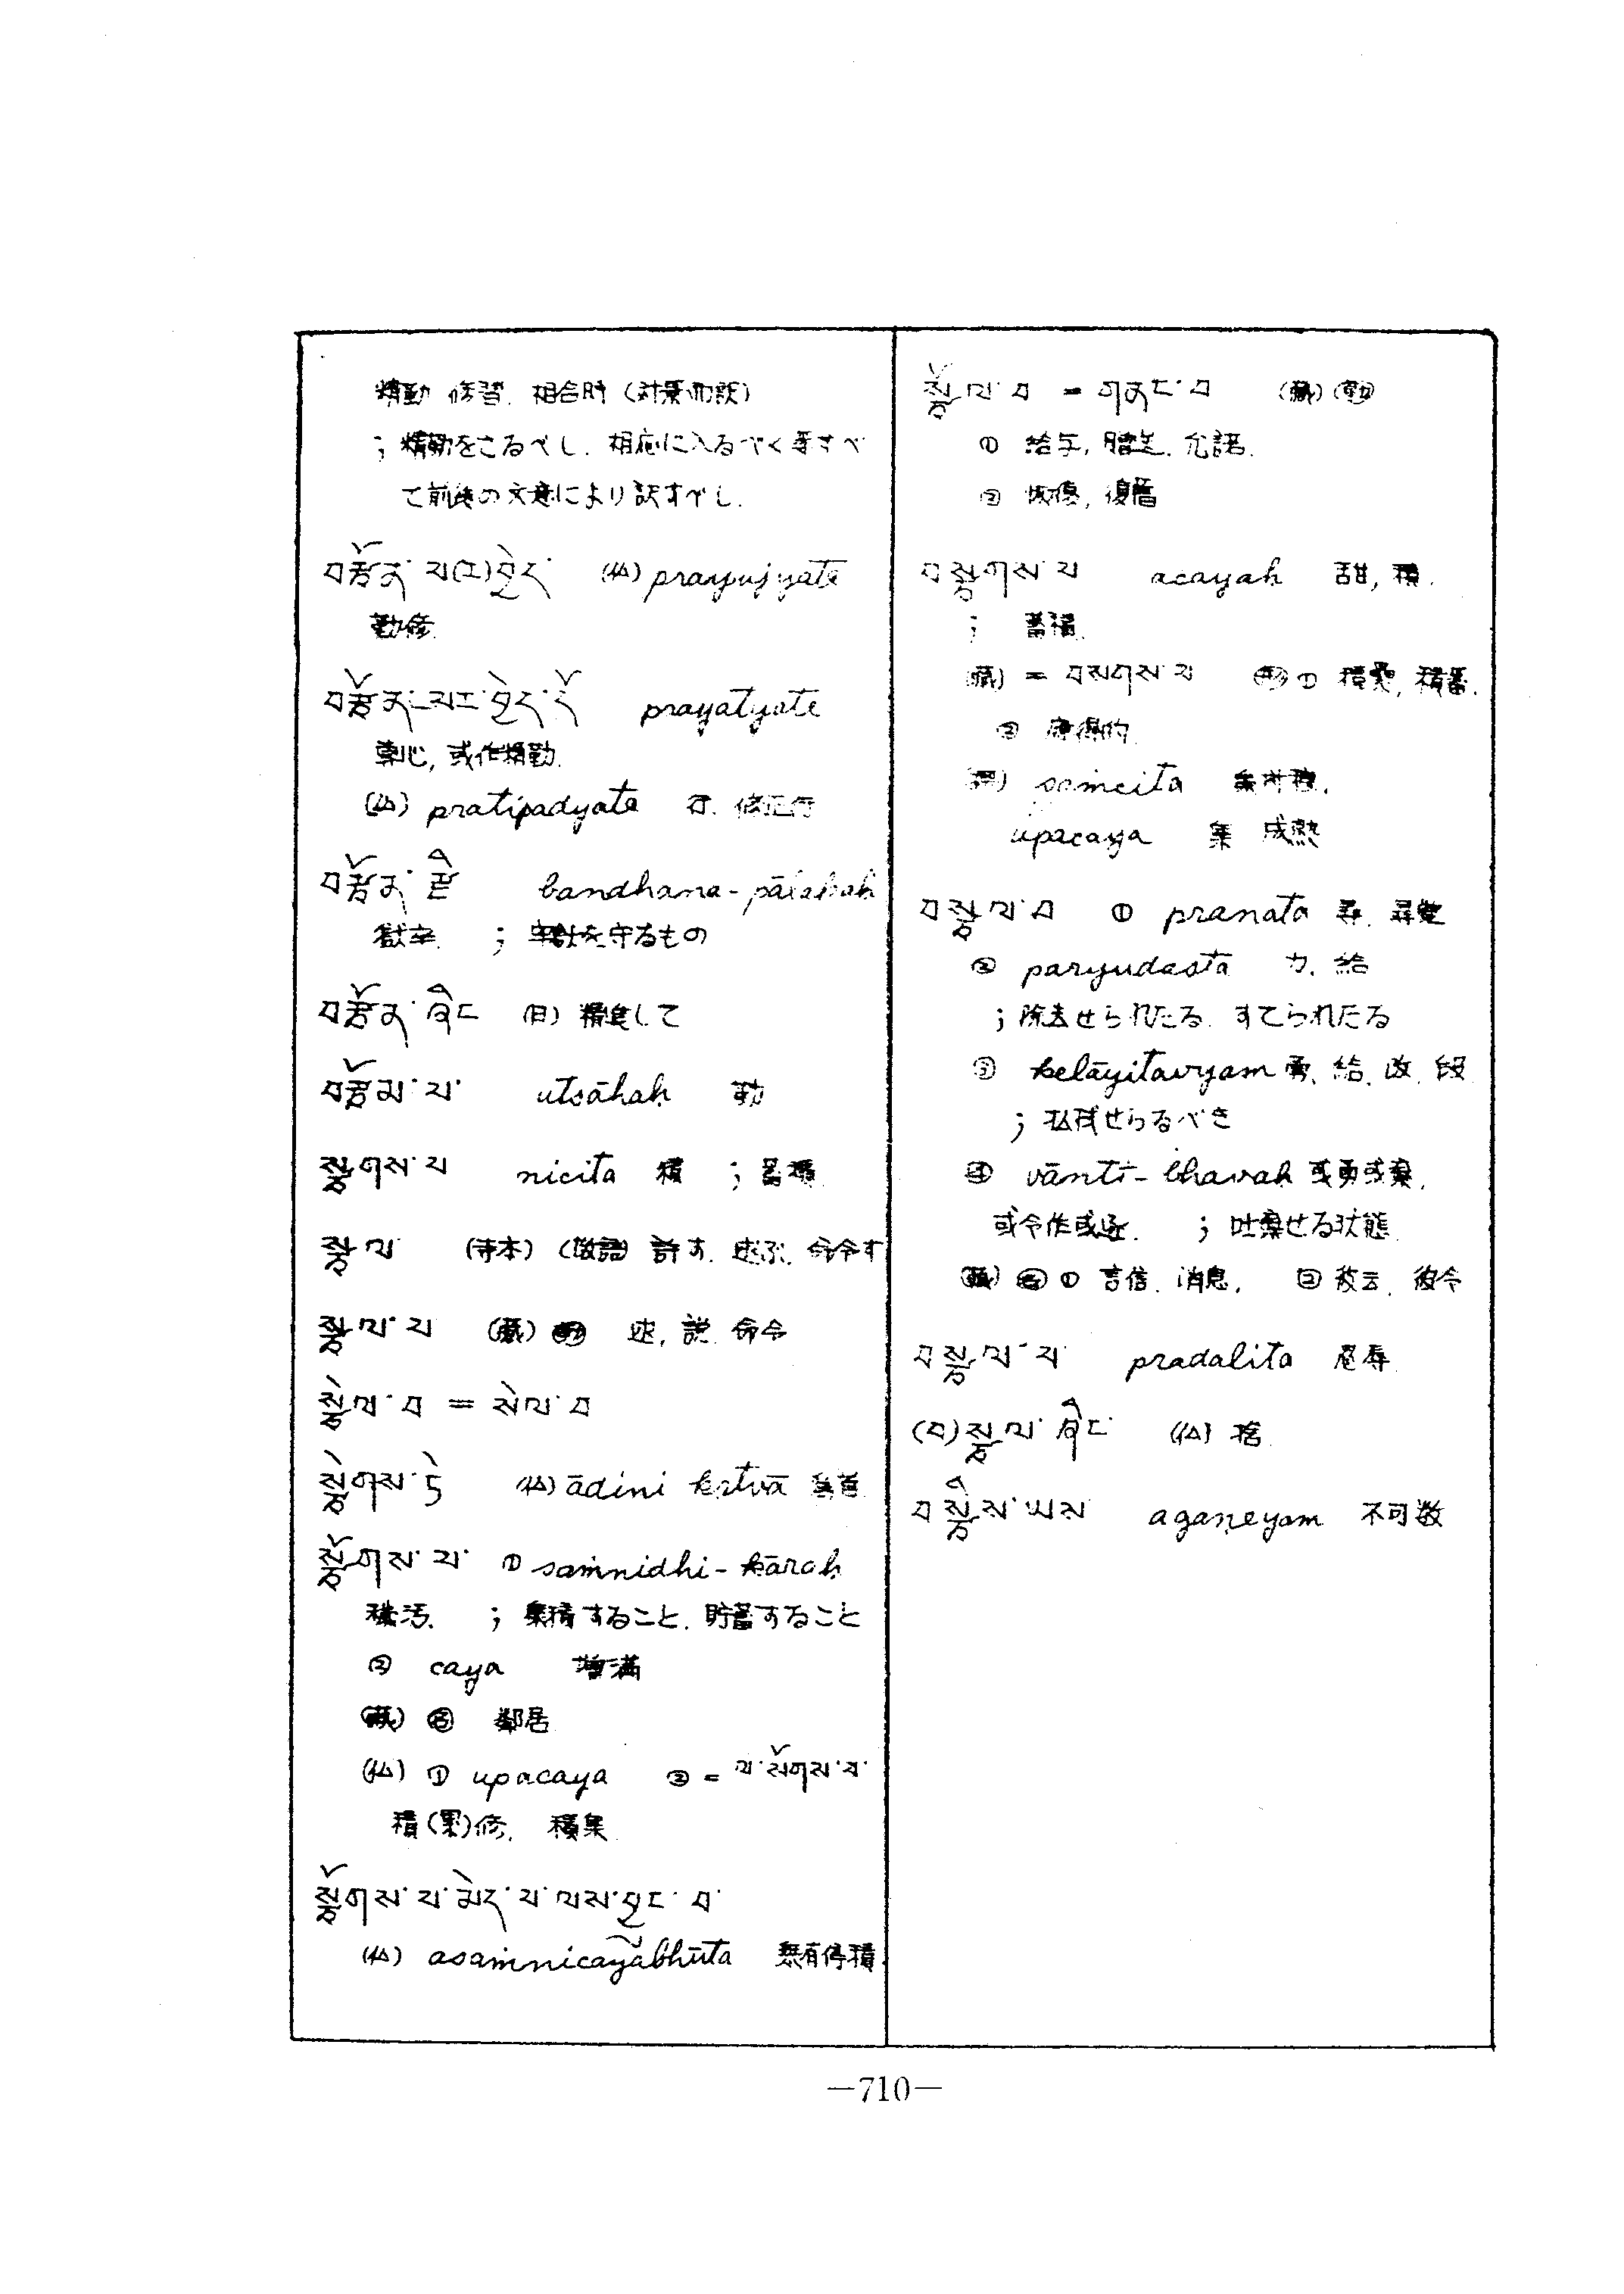 精勤 修習. 相合時 (対業而説)
; 精勤をさるべし. 相応に入るべく等すべ
て前後の文意により訳すべし.
བརྩོན་པ(ར)བྱེད་ (仏) prayujyate
勤修.
བརྩོན་པར་བྱེད་དོ prayatyate
専心, 或作精勤.
(仏) pratipadyate 行. 修正行
བརྩོན་ཇི bandhana-pālakaḥ
獄卒. ; 牢獄を守るもの
བརྩོན་ཞིང (目) 精進して
བརྩོམ་པ་ utsāhaḥ 勤
སྩགས་པ nicita 積 ; 蓄積.
སྩལ (寺本) (敬語) 許す. 述ぶ. 命令す
སྩལ་པ (蔵) 動 述, 説. 命令
སྩེལ་བ = སེལ་བ
སྩེགས་ཏེ (仏) ādini kṛtvā 為首.
སྩོགས་པ་ ① saṁnidhi-kāraḥ
積汚. ; 集積すること. 貯蓄すること
② caya 増満
(蔵) 名 鄰居.
(仏) ① upacaya ② = ལ་སོགས་པ་
積(累)修. 積集.
སྩོགས་པ་མེད་པ་ལས་བྱུང་བ་
(仏) asaṁnicayabhūta 無有停積.
སྩོལ་བ = གནང་བ (蔵) 動
① 給与, 贈送. 允諾.
② 恢復, 復旧
བསྩགས་པ acayaḥ 甜, 積.
; 蓄積.
(蔵) = བསགས་པ ① 積聚, 積蓄.
② 応得的.
saṁcita 集所積.
upacaya 集 成熟
བསྩལ་བ ① pranata 尋. 尋覚
② paryudasta 力. 給
; 除去せられたる. すてられたる
③ kelāyitavyam 勇. 給. 改. 段.
; 払拭せらるべき
④ vāntī-bhavaḥ 或勇或棄.
或令作或逐. ; 吐棄せる状態.
(蔵) 名 ① 言信. 消息. ② 教云. 教令
བསྩལ་པ་ pradalita 屈辱.
(བ)སྩལ་ཞིང་ (仏) 捨.
བསྩིས་ཡས aganeyam 不可数
—710—